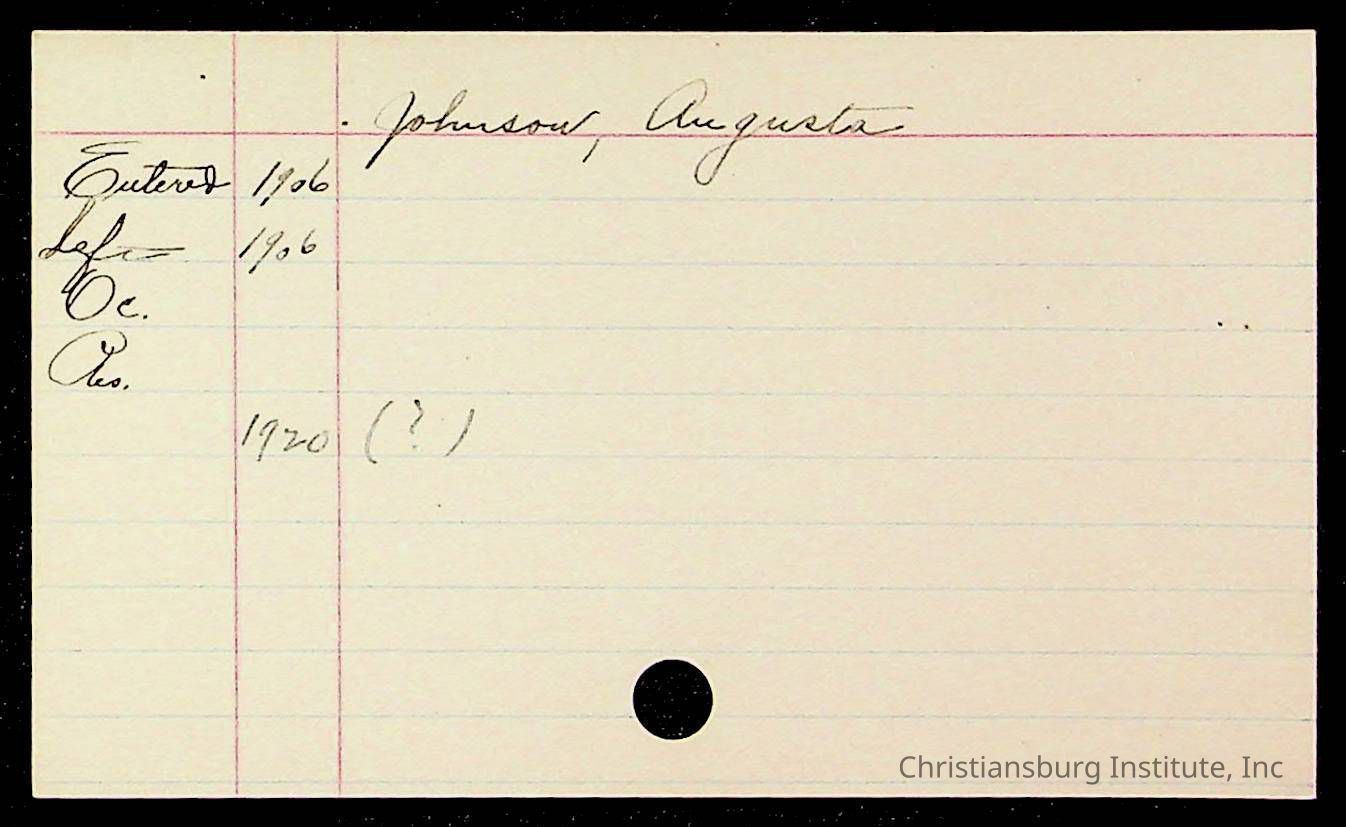 Johnson, Augusta
Entered 1906
Left 1906
Oc.
Res.
1920 (?)
Christiansburg Institute, Inc